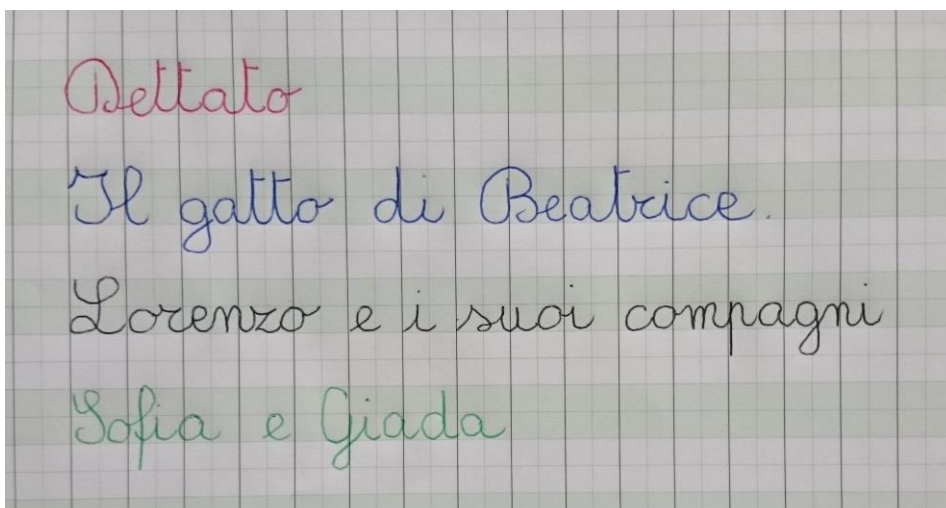 Dettato
Il gatto di Beatrice.
Lorenzo e i suoi compagni
Sofia e Giada